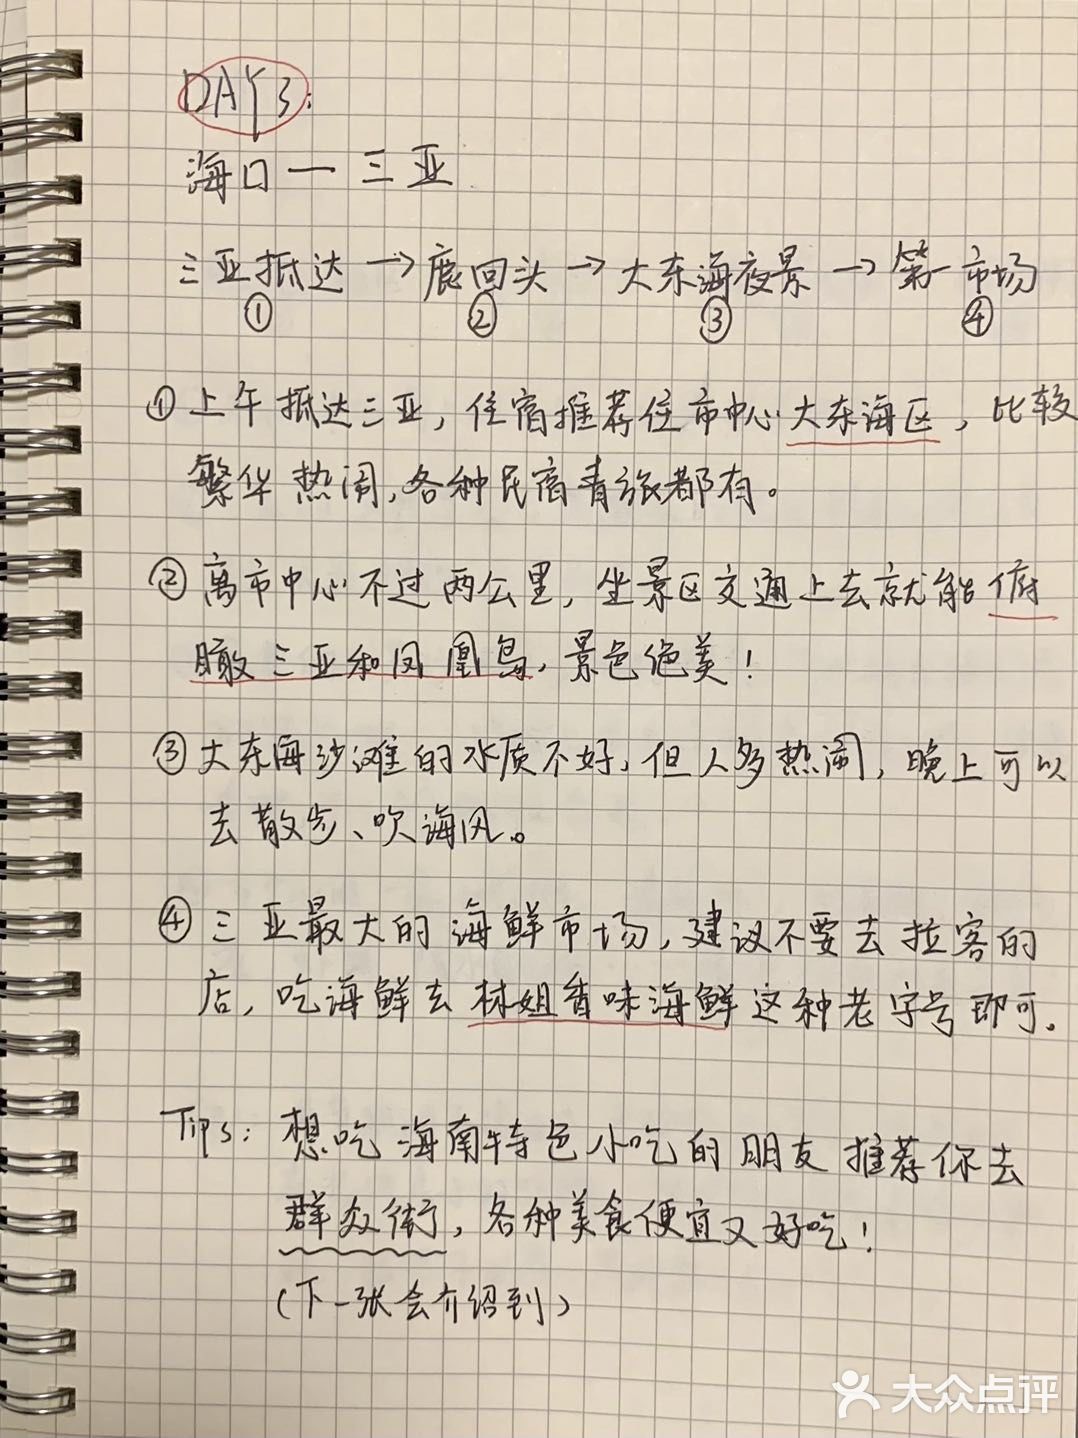 DAY3:
海口一三亚
三亚抵达→鹿回头→大东海夜景→第一市场
① ② ③ ④
①上午抵达三亚,住宿推荐住市中心大东海区,比较
繁华热闹,各种民宿青旅都有。
②离市中心不过两公里,坐景区交通上去就能俯
瞰三亚和凤凰岛,景色绝美!
③大东海沙滩的水质不好,但人多热闹,晚上可以
去散步、吹海风。
④三亚最大的海鲜市场,建议不要去拉客的
店,吃海鲜去林姐香味海鲜这种老字号即可.
Tips:想吃海南特色小吃的朋友推荐你去
群众街,各种美食便宜又好吃!
(下一张会介绍到)
大众点评